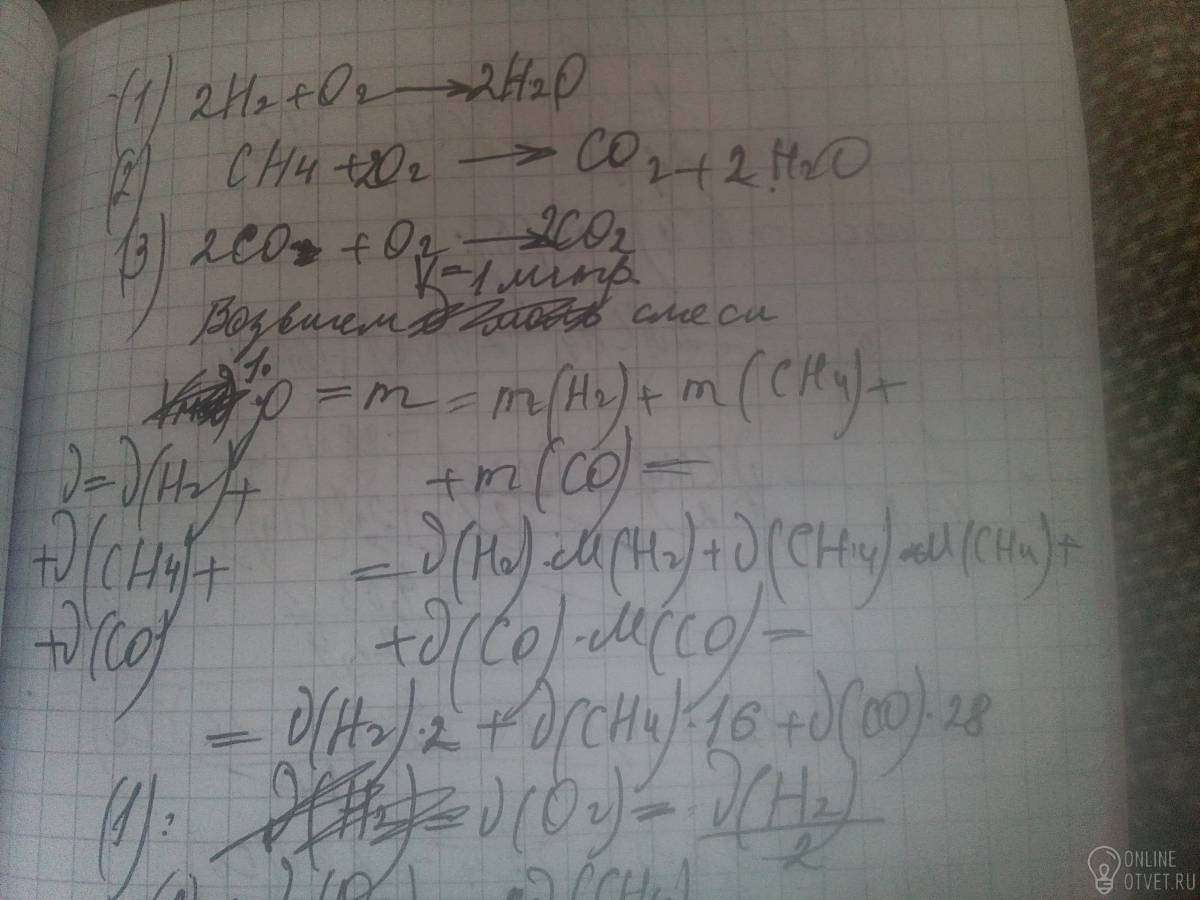 (1) 2H₂ + O₂ → 2H₂O
(2) CH₄ + 2O₂ → CO₂ + 2H₂O
(3) 2CO + O₂ → 2CO₂
V = 1 литр.
Возьмем смеси
= m = m(H₂) + m(CH₄) +
ν = ν(H₂) + + m(CO) =
+ν(CH₄) + = ν(H₂)·M(H₂) + ν(CH₄)·M(CH₄) +
+ν(CO) + ν(CO)·M(CO) =
= ν(H₂)·2 + ν(CH₄)·16 + ν(CO)·28
(1): ν(O₂) = ν(H₂)/2
ONLINE
OTVET.RU